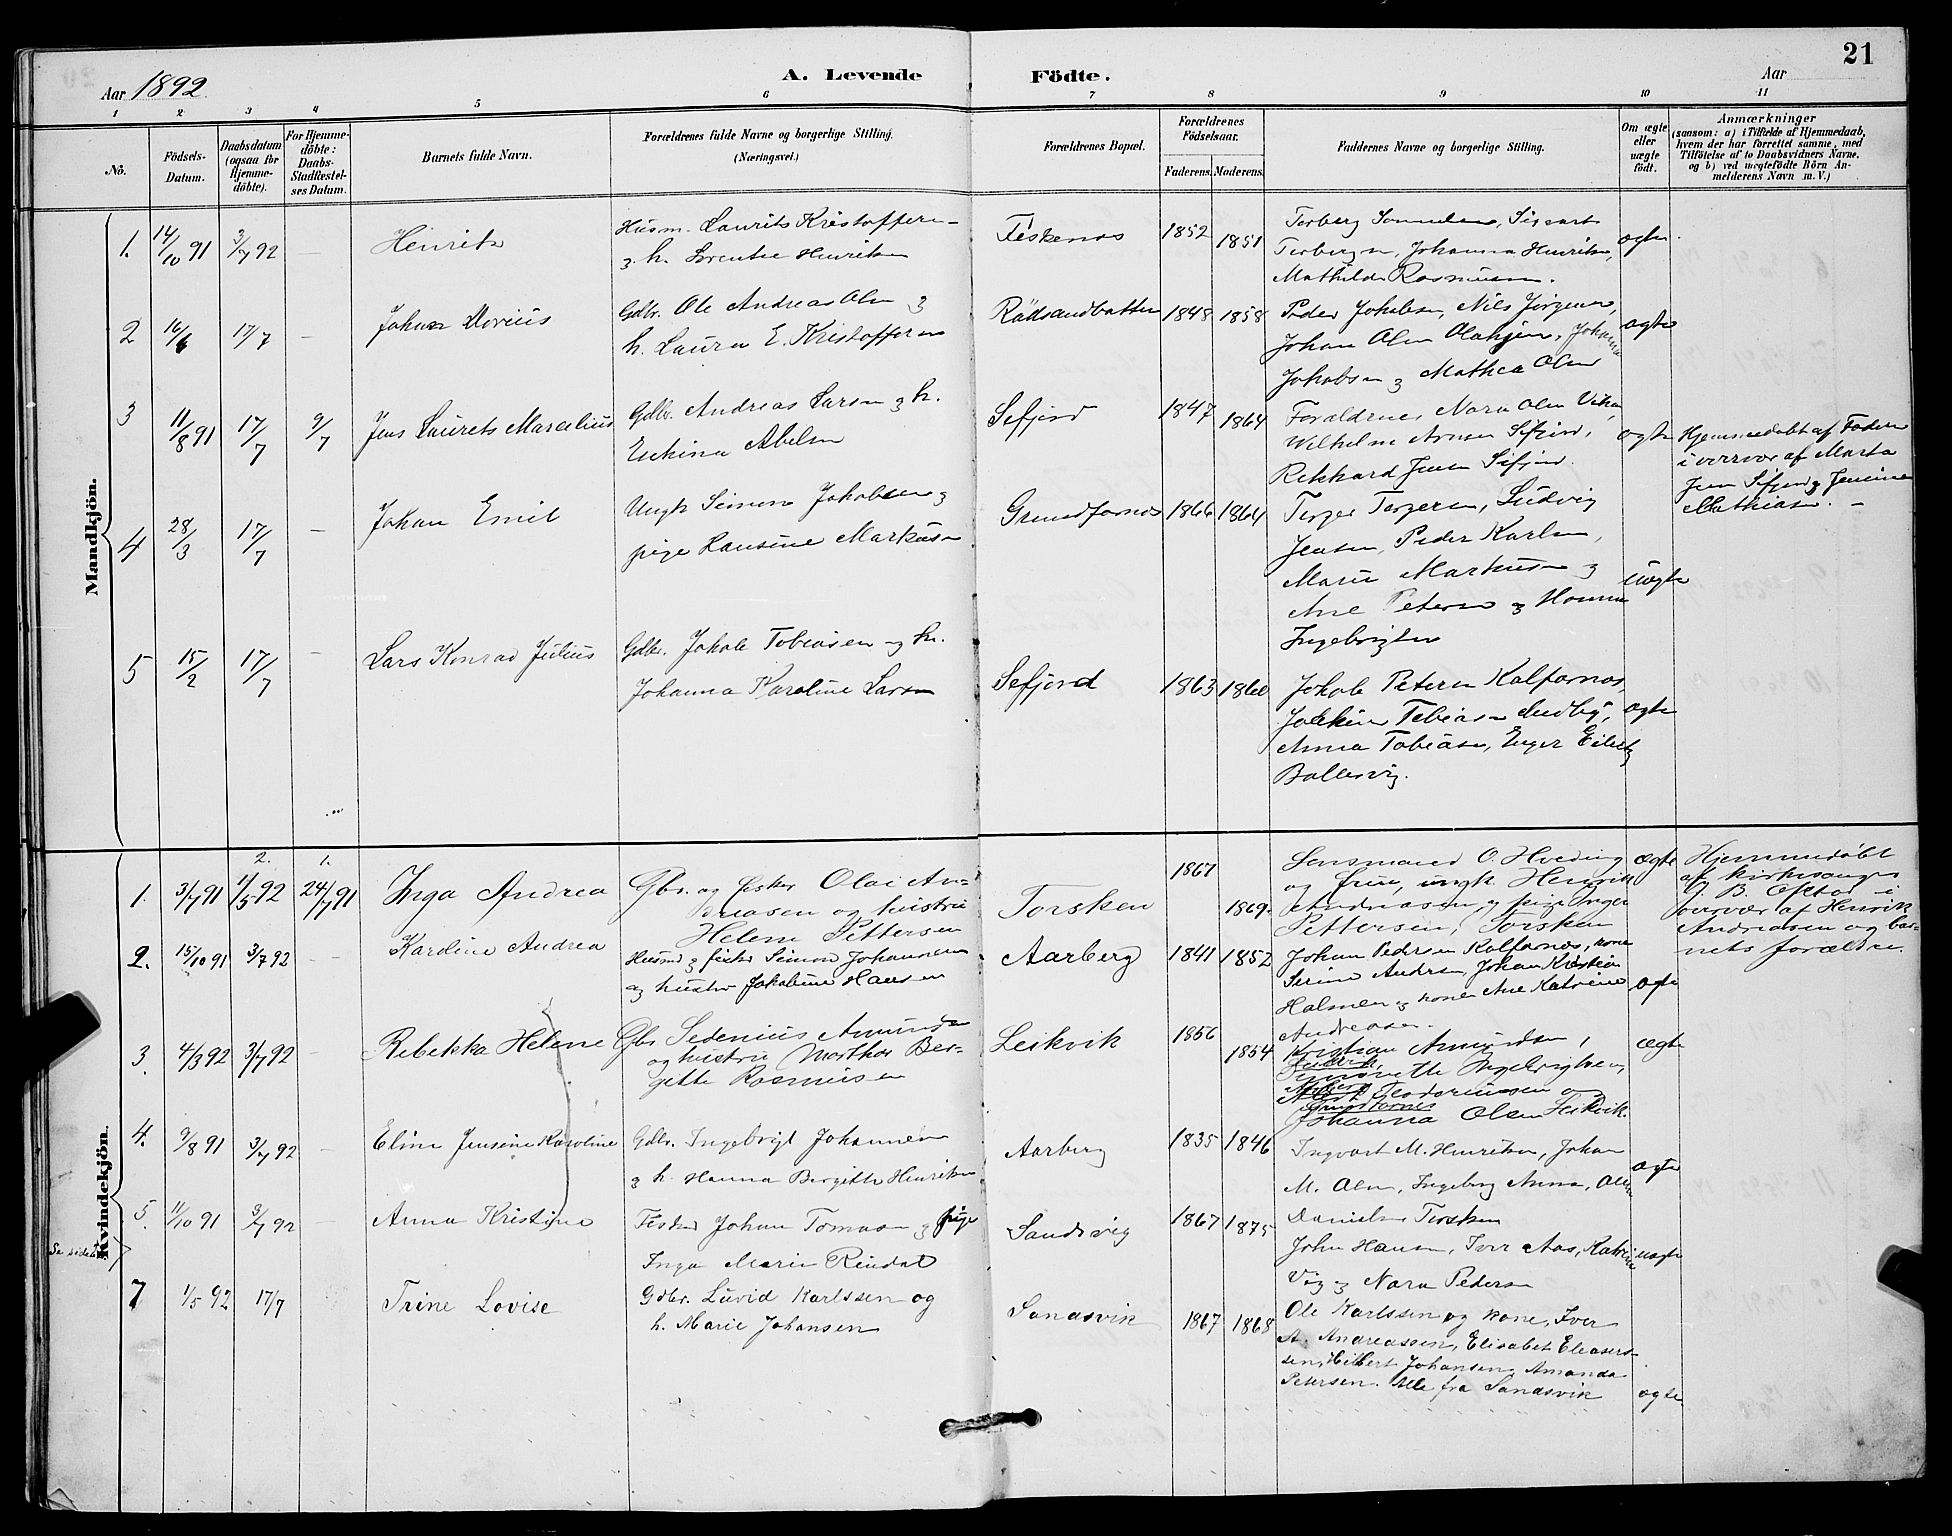 21
A. Levende Födte.
Aar 1892. Aar
1 2 3 4 5 6 7 8 9 10 11
No.
Födsels-Datum.
Daabsdatum (ogsaa for Hjemmedöbte).
For Hjemmedöbte: Daabs-Stadfæstelses Datum.
Barnets fulde Navn.
Forældrenes fulde Navne og borgerlige Stilling. (Næringsvei.)
Forældrenes Bopæl.
Forældrenes Födselsaar. Faderens. Moderens.
Faddernes Navne og borgerlige Stilling.
Om ægte eller uægte födt.
Anmærkninger (saasom: a) i Tilfælde af Hjemmedaab, hvem der har forrettet samme, med Tilföielse af to Daabsvidners Navne, og b) ved uægtefödte Börn Anmelderens Navn m. V.)
Mandkjön.
1. 14/10 91 3/7 92 — Henrik
Husm. Laurits Kristoffersen
og h. Henriksen
Fiskenes 1852 1851
Torberg
Johanna Henriksen,
Mathilde Rasmussen.
ægte
2 16/6 17/7 — Johan
Gdbr. Ole Andreas Olsen og
h. Laura E. Kristoffersen
Rödsandbotten 1848 1858
Peder Jakobsen, Nils Jörgensen,
Johan Olsen
Jakobsen og Mathea Olsen
ægte
3 11/8 91 17/7 9/7 Jens Laurets Marcelius
Gdbr. Andreas Larsen og h.
Abelsen
Sefjord 1847 1864
Forældrene, Nora Olsen
Sifjord,
Rikhard Jensen Sifjord.
ægte
Hjemmedöbt af Faderen
i overvær af Marta
Jensen Sifjord og
Mathiasen. —
4 28/3 17/7 — Johan Emil
Ungk. Simon Jakobsen og
pige Hansine Markusen
Grundfarnes 1866 1864
Ludvig
Jensen, Peder Karlsen,
Marie Markusen og
Ane Petersen og
Ingebrigtsen
uægte
5 15/2 17/7 — Lars Konrad Julius
Gdbr. Jakob Tobiasen og h.
Johanna Karoline Larsen
Sefjord 1863 1860
Jakob Petersen Kalfarnes,
Tobiasen Medby,
Anna Tobiasen,
Ballesvig.
ægte
Kvindekjön.
1. 3/7 91 2. 1/5 92 1. 24/7 91 Inga Andrea
Gbr. og fisker Olai An-
dreasen og hustru
Helene Pettersen
Torsken 1867 1869.
Lensmand O. Hveding
og frue, ungk. Henrik
Andreasen, og pige Inger
Pettersen, Torsken
ægte
Hjemmedöbt
af kirkesanger
J. B. i
overvær af Henrik
Andreasen og bar-
nets forældre.
2. 15/10 91 3/7 92 — Karoline Andrea
Husmd og fisker Simon Johannesen
og hustru Jakobine Hansen
Aarberg 1841 1852
Johan Pedersen Kalfarnes, kone
Serine Andersen, Johan Kristian
og kone Ane Katrine
Andreasen.
ægte
3. 4/3 92 3/7 92 — Rebekka Helene
Gbr Sedenius Amundsen
og hustru Marthas Ber-
gitte Rasmussen
Leikvik 1856 1854
Kristian Amundsen,
Ingebrigtsen,
Teodoriussen og
Grundfarnes
Johanna Olsen Leikvik.
ægte
4. 9/8 91 3/7 92 — Eline Jensine Karoline
Gdbr. Ingebrigt Johannesen
og h. Hanna Bergitte Henriksen
Aarberg 1835 1846
Ingvart M. Henriksen, Johan
M. Olsen, Ingeborg Anna, Olsen
ægte
5. 11/10 91 3/7 92 — Anna Kristine
Fisker Johan Tomasen og pige
Inga Marie Rindal
Sandsvig 1867 1875
Danielsen Torsken
John Hansen, Iver Aas, Katrine
Vig og Nora Pedersen
uægte
Se side
7 1/5 92 17/7 Trine Lovise
Gdbr. Luvid Karlssen og
h. Marie Johansen
Sandsvik 1867 1868
Ole Karlssen og kone, Iver
A. Andreassen, Elisabet Eleasers-
sen, Hilbert Johansen, Amanda
Petersen. Alle fra Sandsvik
ægte